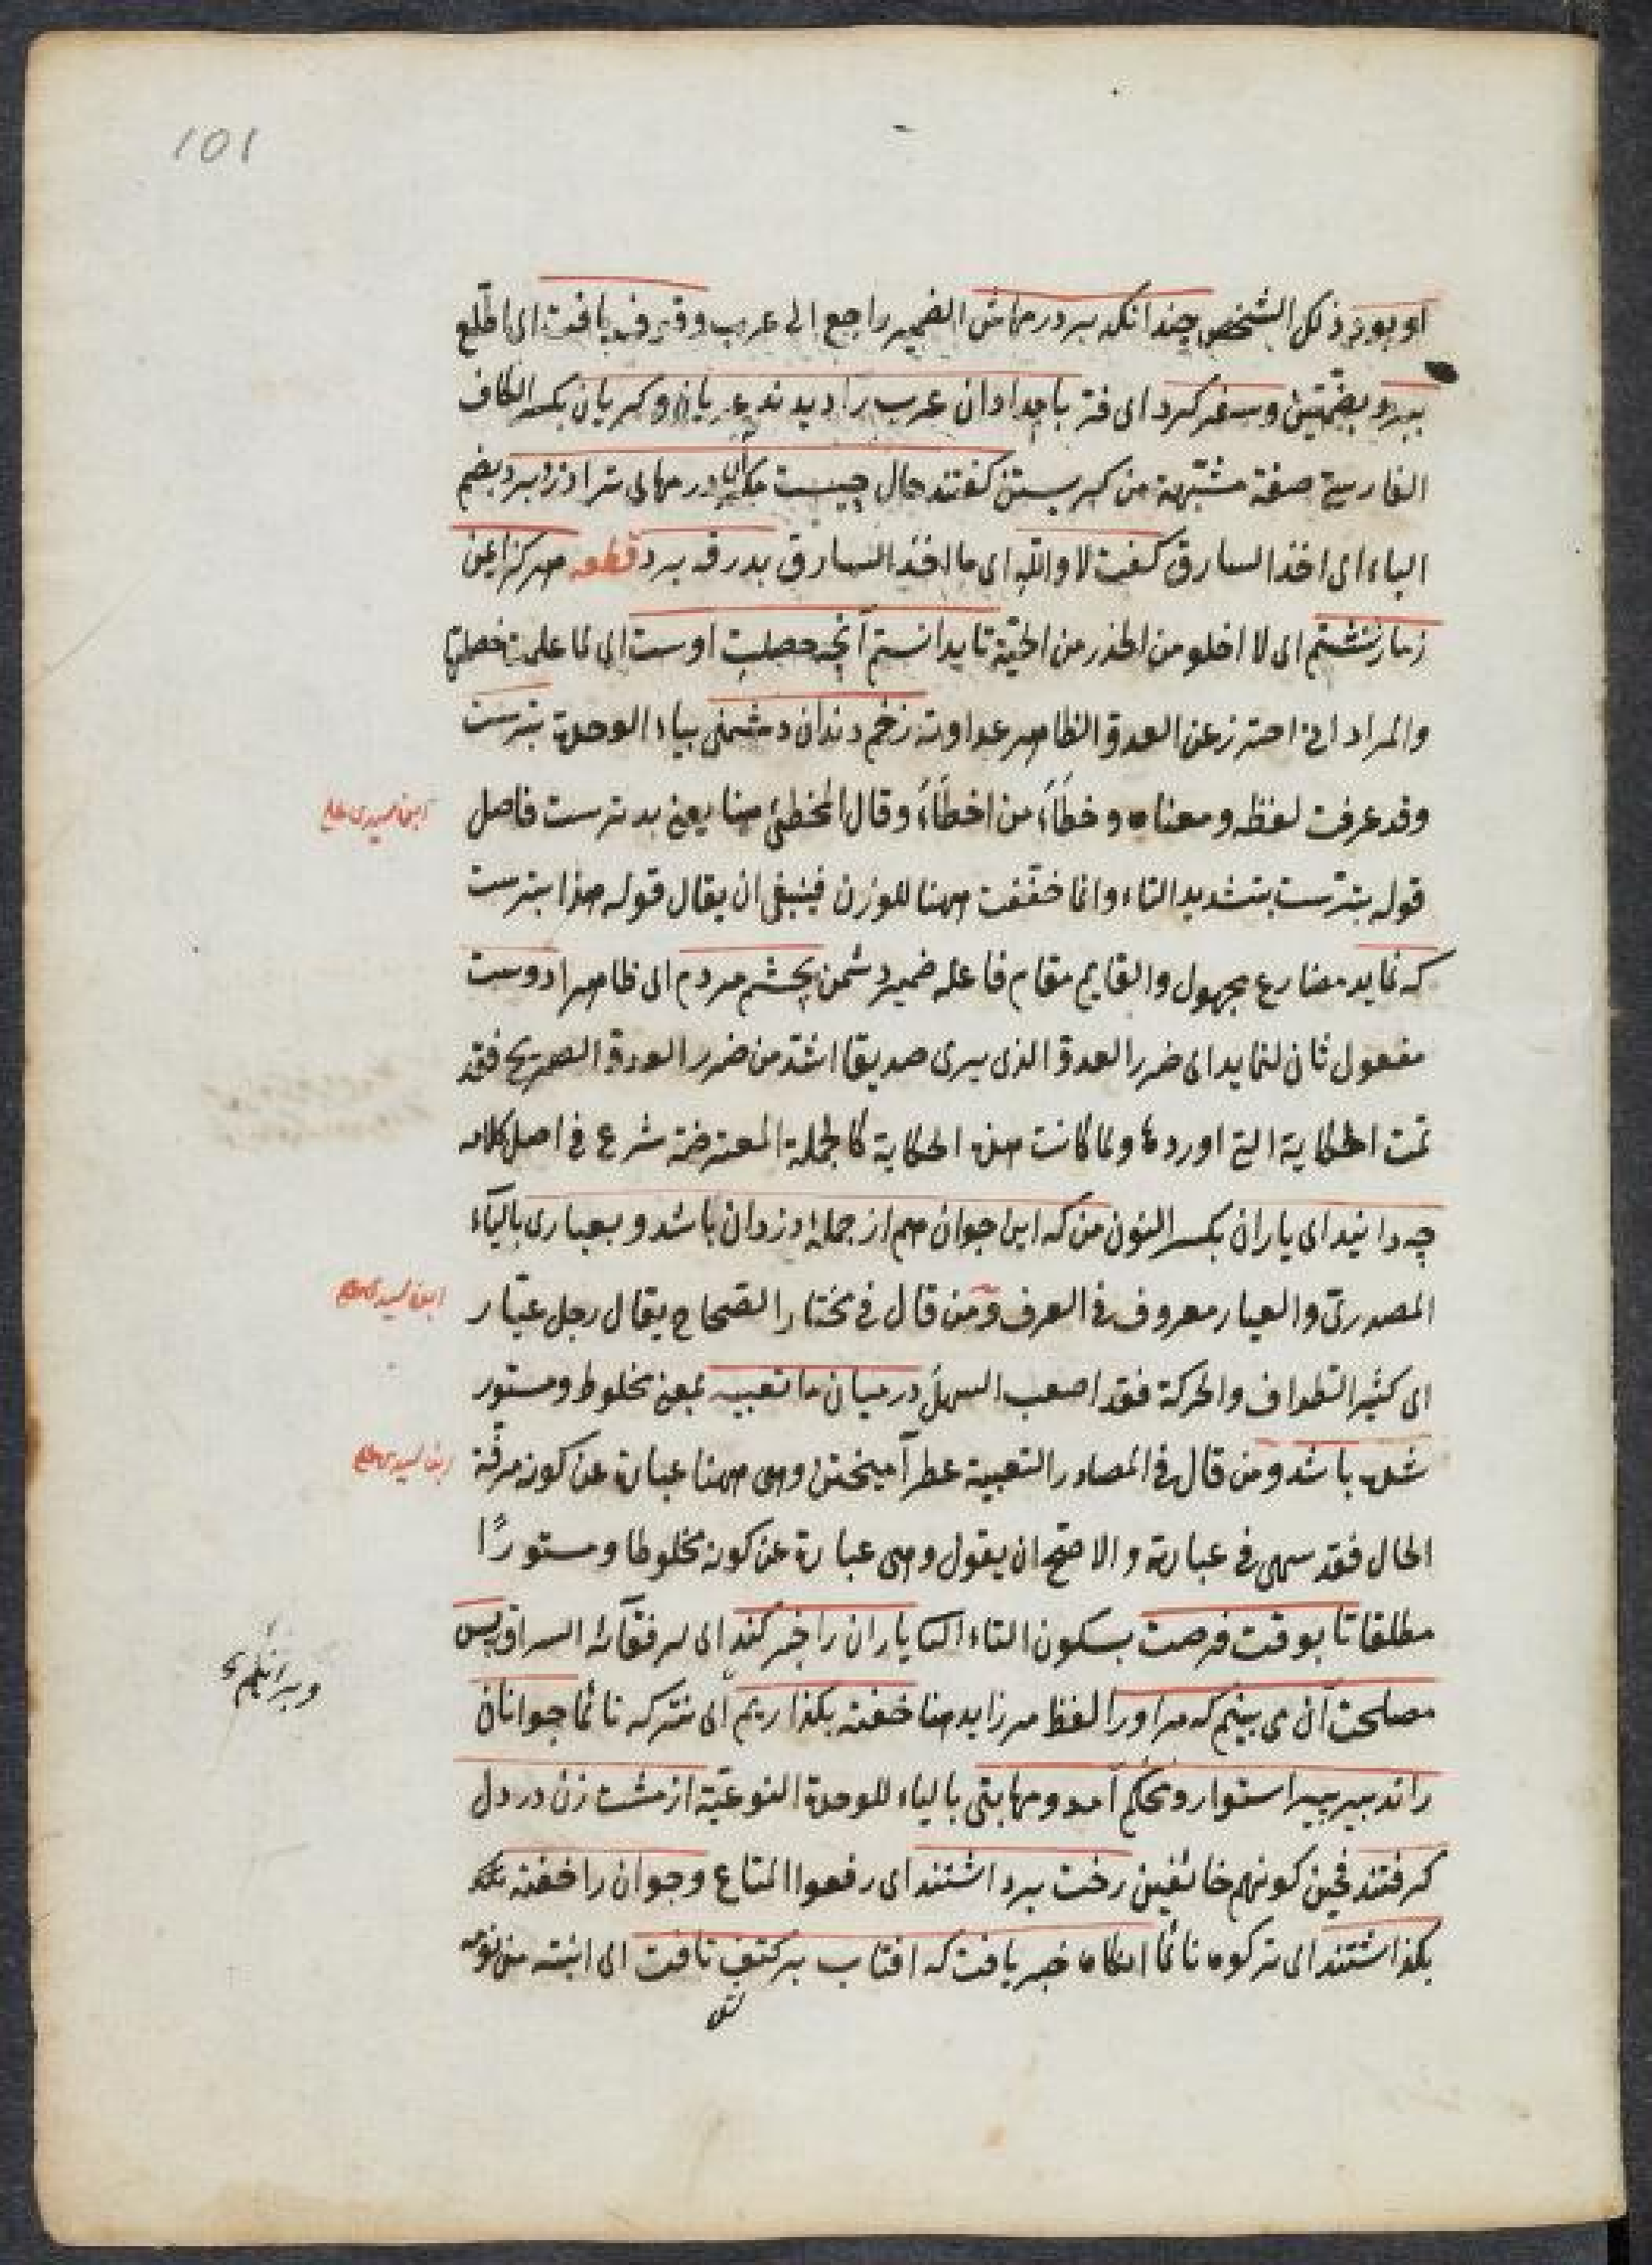 101
او بود ذلك الشخص چندانكه بر درمهاش الضمير راجع الى عرب وقوف يافت اى اطلع
ببرد بضمتين وسفر كرد اى فتر بامدادان عرب را ديدند عريان وكريان بكسر الكاف
الفارسية صفة مشتبهة من كريستن كفتند حال چيست مكر آن درمهاى ترا دزد برد بضم
الباء اى اخذ السارق كفت لا والله اى ما اخذ السارق بدرقه برد قطعه هركز ايمن
زمار ننشستم اى لا اخلو من الحذر من الحيّة تا بدانستم آنچه خصلت اوست اى لما علمت خصلتها
والمراد انى احترز عن العدو الظاهر عداوته زخم دندان دشمنى بياء الوحدة بترست
وقد عرفت لفظه ومعناه وخطاءَ من اخطاءَ وقال المخطئ هنا يعنى بد ترست فاصل
قوله بترّست بتشديد التاء وانما خففت ههنا للوزن فينبغى ان يقال قوله هذا بترست
كه نمايد مضارع مجهول والقايم مقام فاعله ضمير دشمن بچشم مردم اى ظاهرا دوست
مفعول ثان لنمايد اى ضرر العدو الذى يرى صديقا اشد من ضرر العدو الصريح فقد
تمت الحكاية التى اوردها ولما كانت هذه الحكاية كالجملة المعترضة شرع فى اصل كلامه
چه دانيد اى ياران بكسر النون من كه اين جوان هم از جملهٔ دزدان باشد و بعيارى بالياء
المصدرى والعيار معروف فى العرف ومن قال فى مختار الصحاح يقال رجل عيّار
اى كثير التطواف والحركة فقد اصعب السهل در ميان ما تعبيه بمعنى مخلوط ومستور
شده باشد ومن قال فى المصادر التعبية عطر آميختن وهى ههنا عبارة عن كونه مرفّه
الحال فقد سهى فى عبارته والاصح ان يقول وهى عبارة عن كونه مخلوطا ومستورًا
مطلقا تا بوقت فرصت بسكون التاء ياران را خبر كند اى لرفقائه السراق پس
مصلحت آن مى بينم كه مر اورا لفظ مر زايد هنا خفته بكذاريم اى نتركه نائما جوانان
را تدبير پير استوار ومحكم آمد ومهابتى بالياء للوحدة النوعيّة از مشت زن در دل
كرفتند فحين كونهم خائفين رخت برداشتند اى رفعوا المتاع وجوان را خفته
بكذاشتند اى تركوه نائما انكاه خبر يافت كه افتاب بر كتف تافت اى انتبه من نومه
ش
ابن سيدى على
ابن سيدى على
ابن سيدى على
وبرانيم